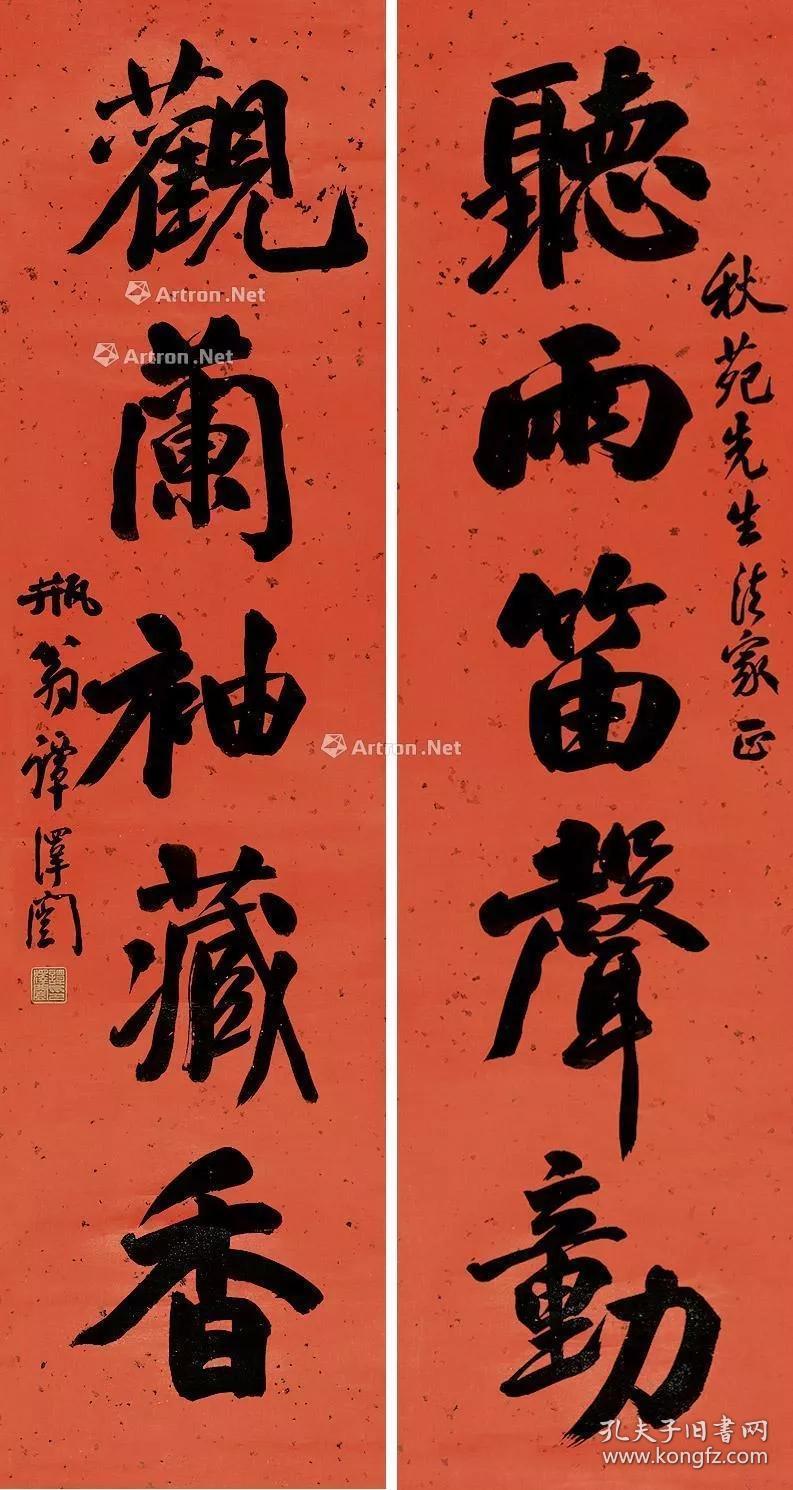 聽雨笛聲動
秋苑先生法家正
觀蘭袖藏香
瓶翁譚澤闓
Artron.Net
Artron.Net
Artron.Net
孔夫子旧书网
www.kongfz.com